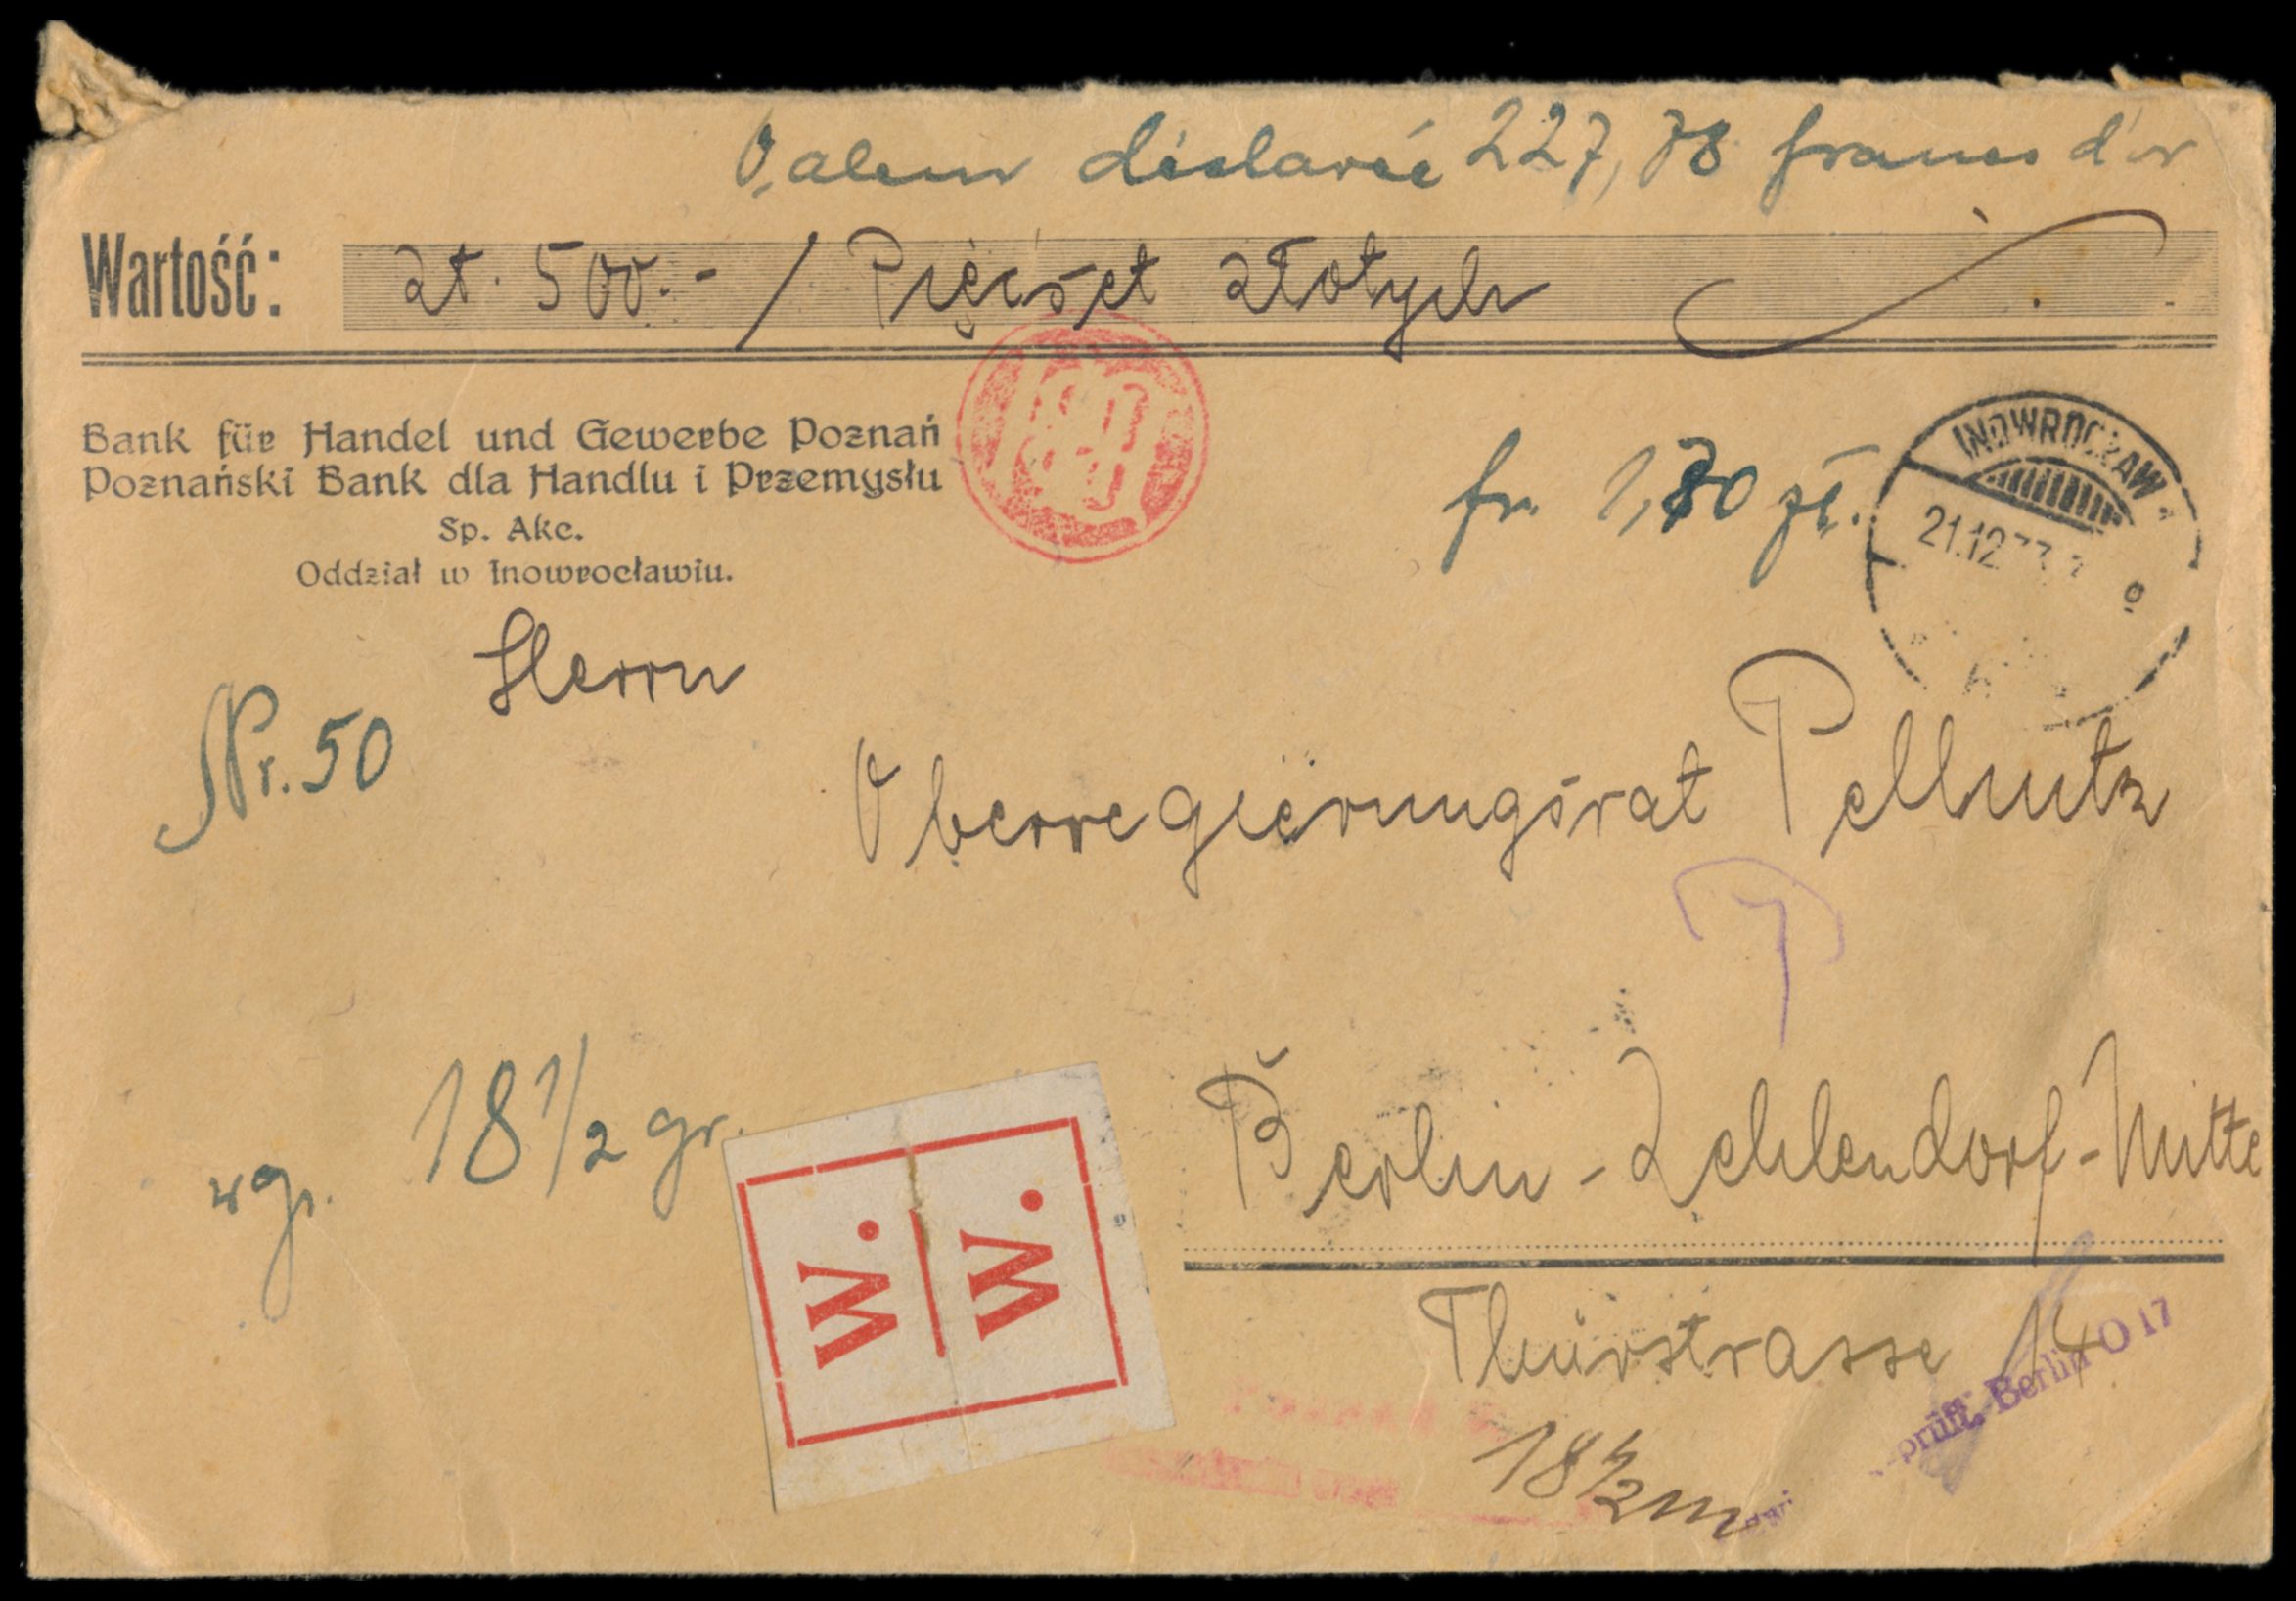 Valeur déclarée 227,78 francs d'or
Wartość: zł. 500.- / Pięćset złotych
Bank für Handel und Gewerbe Poznań
Poznański Bank dla Handlu i Przemysłu
Sp. Akc.
Oddział w Inowrocławiu.
fr. 1,80 zł.
INOWROCŁAW
21.12
Herrn
Nr. 50
Oberregierungsrat
wg. 18 1/2 gr.
W. W.
Berlin-Zehlendorf-Mitte
Thürstrasse 14
Berlin O 17
18 1/2